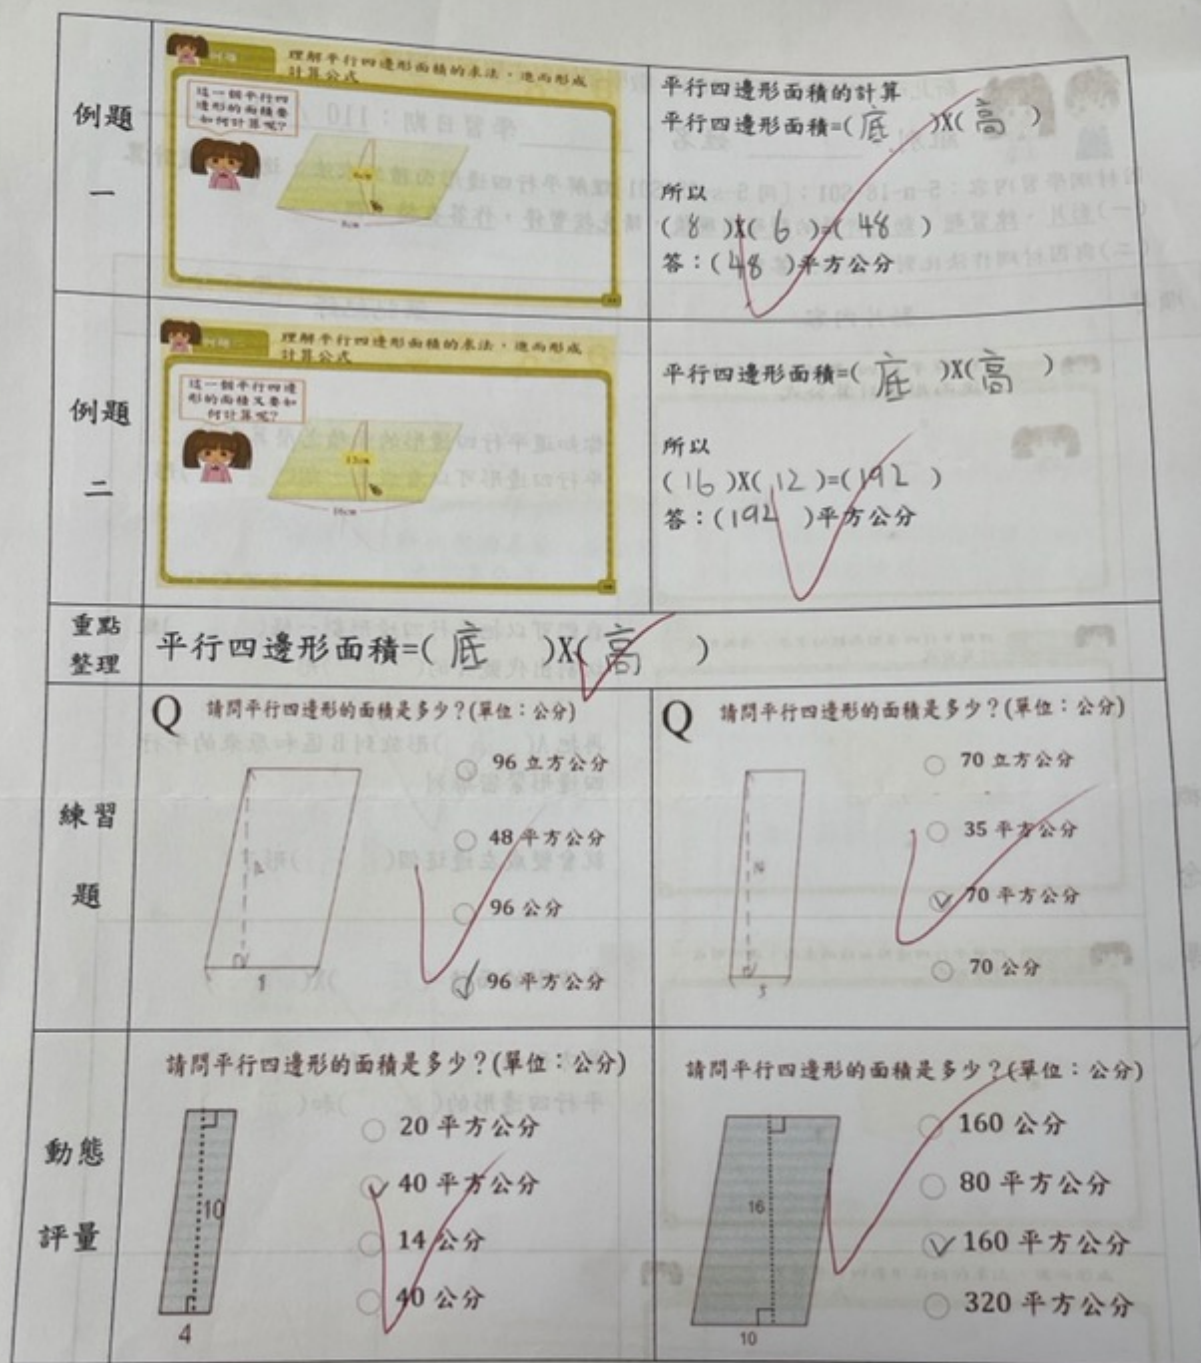 例題
一
理解平行四邊形面積的求法,進而形成
計算公式
這一個平行四
邊形的面積要
如何計算呢?
6cm
8cm
平行四邊形面積的計算
平行四邊形面積=(底)X(高)
所以
(8)X(6)=(48)
答:(48)平方公分
例題
二
理解平行四邊形面積的求法,進而形成
計算公式
這一個平行四邊
形的面積又要如
何計算呢?
12cm
16cm
平行四邊形面積=(底)X(高)
所以
(16)X(12)=(192)
答:(192)平方公分
重點
整理
平行四邊形面積=(底)X(高)
練習
題
Q 請問平行四邊形的面積是多少?(單位:公分)
96 立方公分
48 平方公分
96 公分
96 平方公分
Q 請問平行四邊形的面積是多少?(單位:公分)
70 立方公分
35 平方公分
70 平方公分
70 公分
5
動態
評量
請問平行四邊形的面積是多少?(單位:公分)
20 平方公分
40 平方公分
14 公分
40 公分
10
4
請問平行四邊形的面積是多少?(單位:公分)
160 公分
80 平方公分
160 平方公分
320 平方公分
16
10